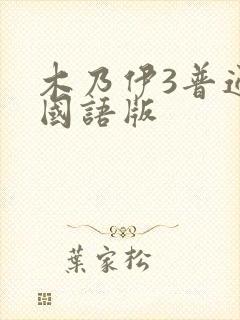 木乃伊3普通
國語版
葉家松